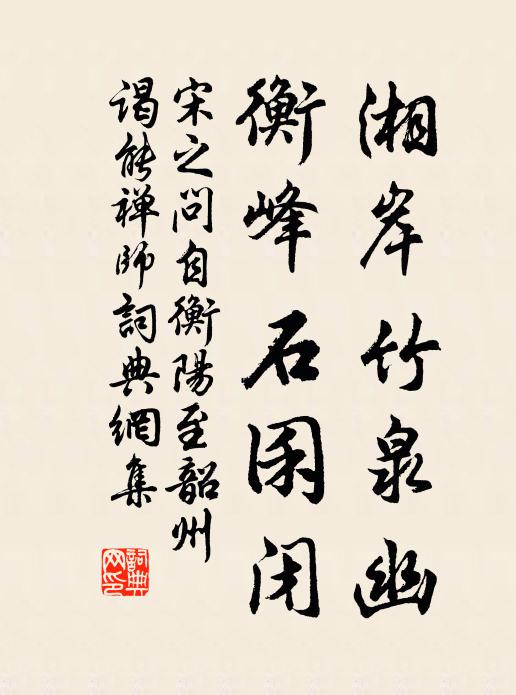 湘岸竹泉幽
衡峰石囷闭
宋之问自衡陽至韶州
谒能禅师詞典網集
詞典网印